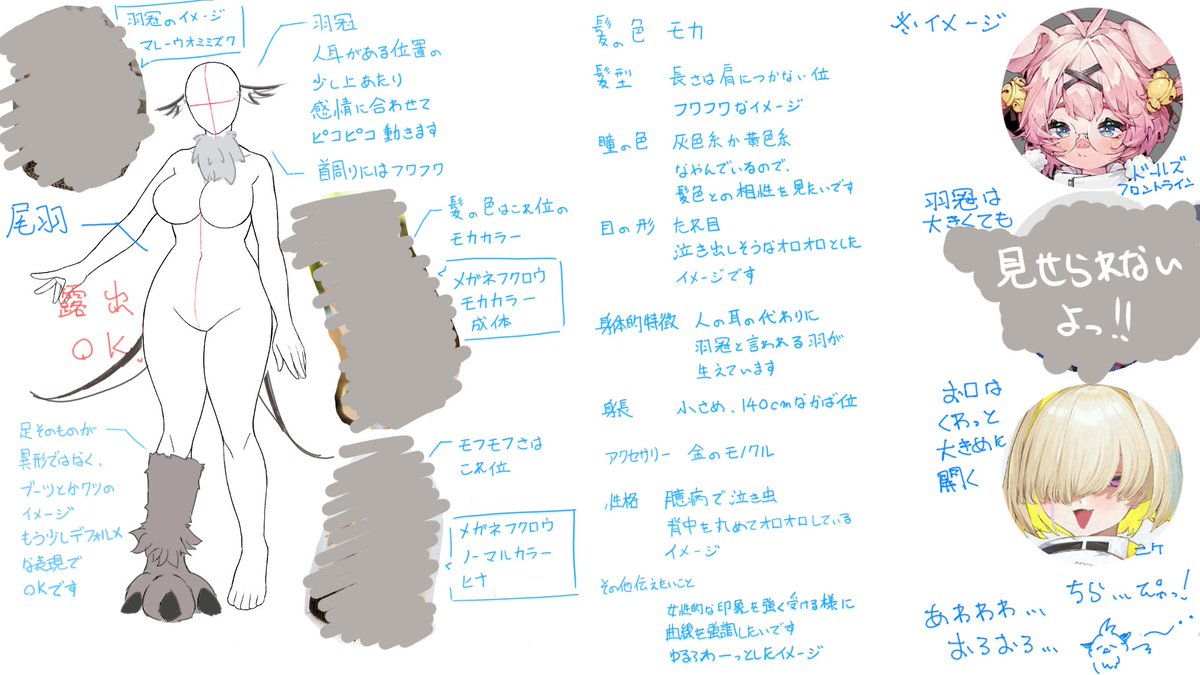 羽冠のイメージ
マレーウオミミズク
羽冠
人耳がある位置の
少し上あたり
感情に合わせて
ピコピコ動きます
首周りにはフワフワ
尾羽
露出
OK
髪の色はこれ位の
モカカラー
メガネフクロウ
モカカラー
成体
足そのものが
異形ではなく、
ブーツとかクツの
イメージ
もう少しデフォルメ
な表現で
OKです
モフモフさは
これ位
メガネフクロウ
ノーマルカラー
ヒナ
髪の色 モカ
髪型 長さは肩につかない位
フワフワなイメージ
瞳の色 灰色系か黄色系
なやんでいるので、
髪色との相性を見たいです
目の形 たれ目
泣き出しそうなオロオロとした
イメージです
身体的特徴 人の耳の代わりに
羽冠と言われる羽が
生えています
身長 小さめ、140cmなかば位
アクセサリー 金のモノクル
性格 臆病で泣き虫
背中を丸めてオロオロしている
イメージ
その他伝えたいこと
女性的な印象を強く受ける様に
曲線を強調したいです
ゆるふわーっとしたイメージ
※イメージ
ドールズ
フロントライン
羽冠は
大きくても
見せられない
よっ!!
お口は
くわっと
大きめに
開く
ニケ
あわわわ…
おろおろ…
ちら…ぴゃっ!